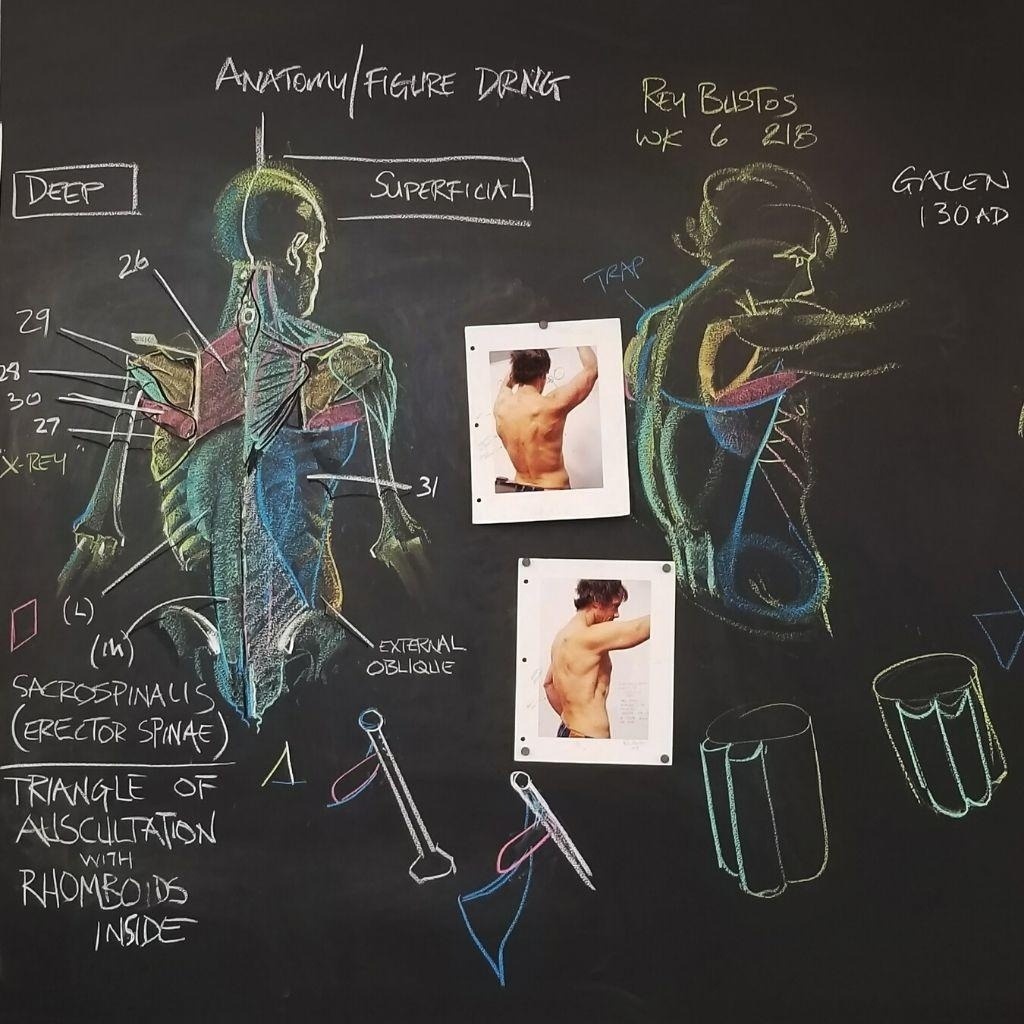 ANATOMY/FIGURE DRNG
REY BUSTOS
WK 6 218
DEEP
SUPERFICIAL
GALEN
130 AD
TRAP
26
29
28
30
27
"X-REY"
31
(L)
(M)
EXTERNAL
OBLIQUE
SACROSPINALIS
(ERECTOR SPINAE)
TRIANGLE OF
AUSCULTATION
WITH
RHOMBOIDS
INSIDE